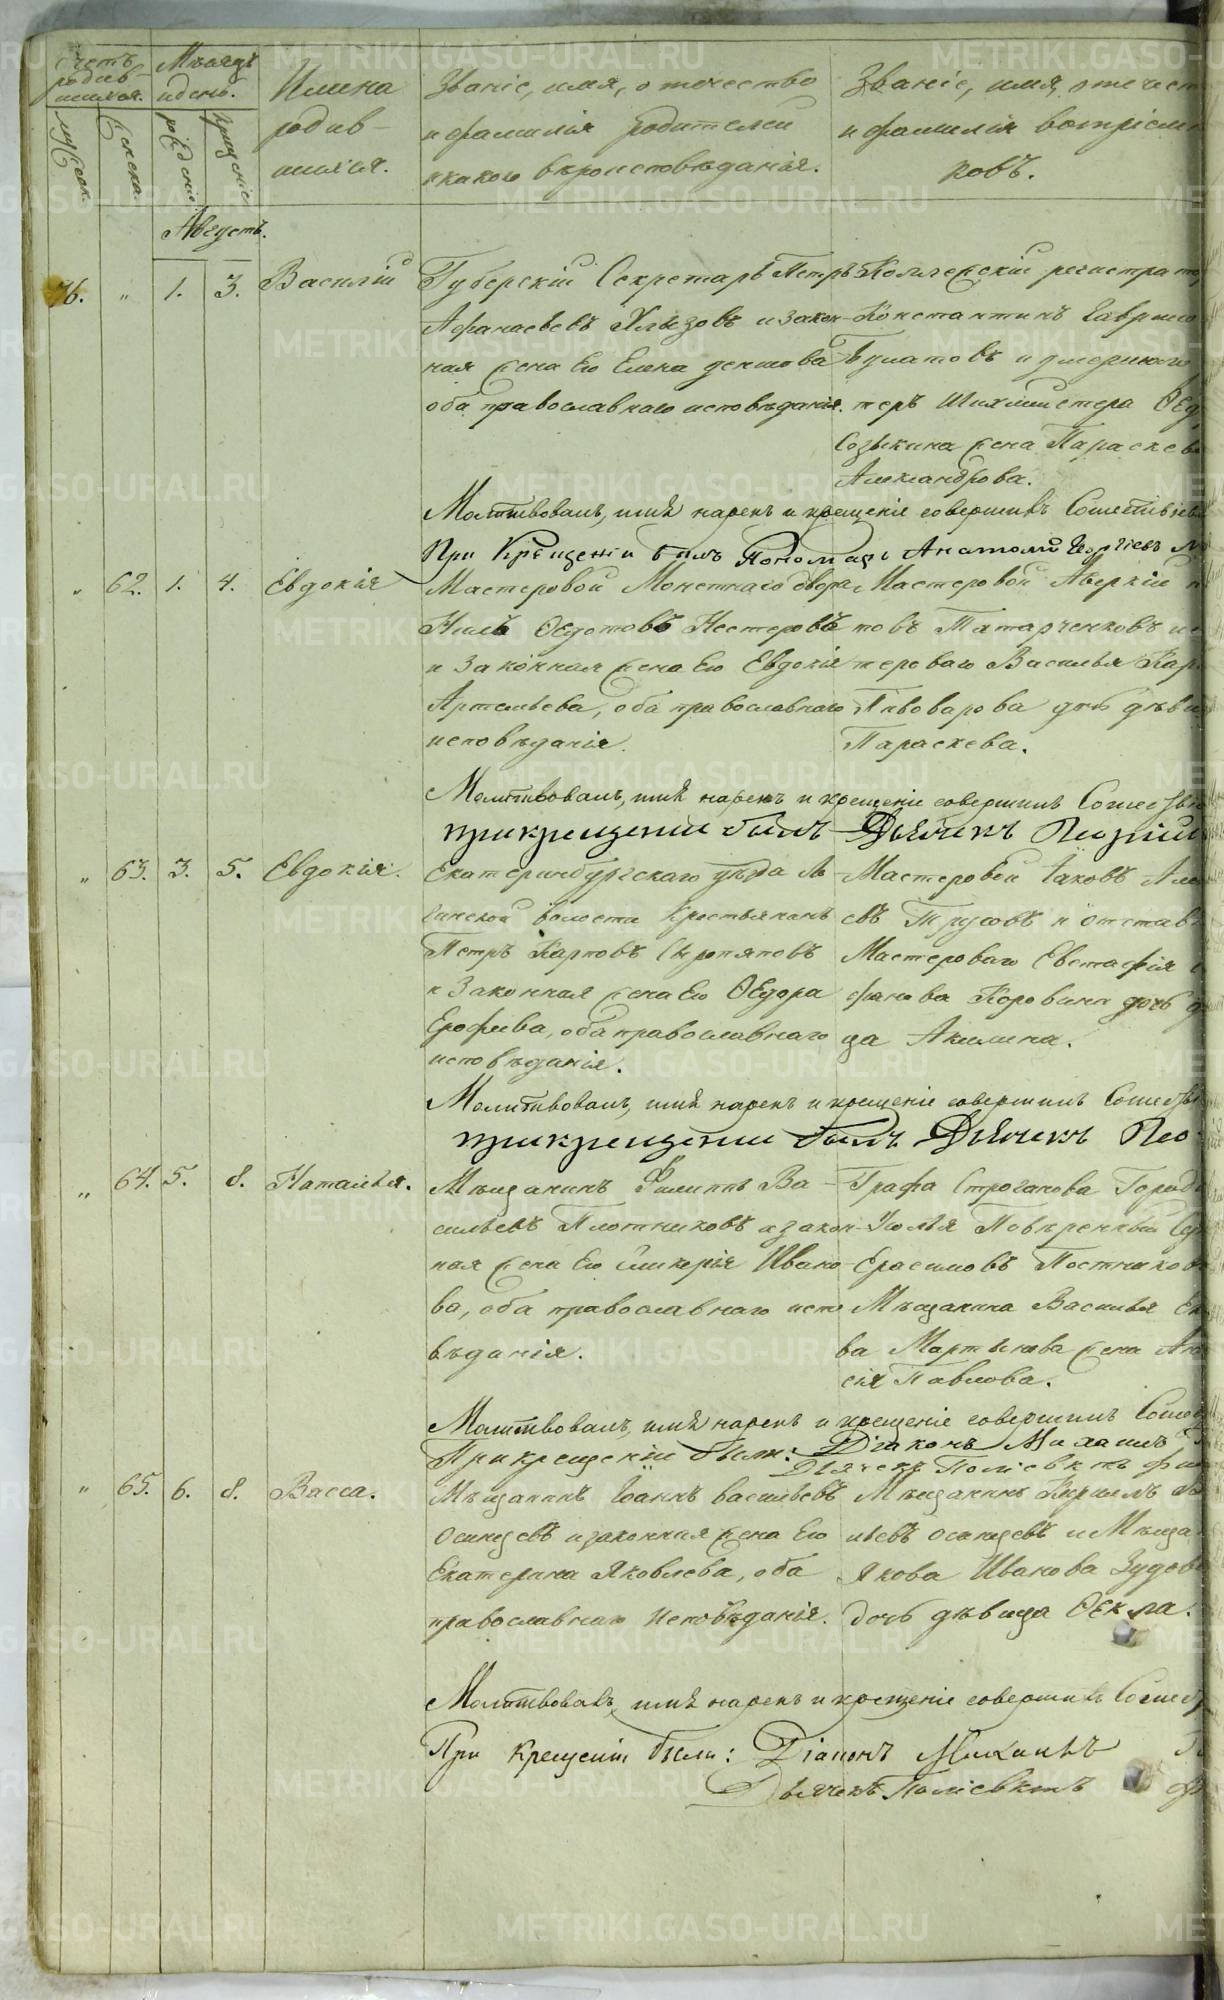 Счетъ родив-шихся.
Мѣсяцъ и день.
Имена родив-шихся.
Званіе, имя, отчество и фамилія родителей и какого вѣроисповѣданія.
Званіе, имя, отчест и фамилія воспріем ковъ.
мужеск.
женска.
рожденіе
крещеніе
Августъ.
76. „ 1. 3. Василій
Губерскій Секретарь Петръ
Афанасьевъ Хлызовъ и закон-
ная жена его Елена
оба православнаго исповѣданія.
Коллежскій регистрато
Константинъ Гаврило
Булатовъ и умершаго
Шихтмистера Ѳед
Созыкина жена Параскева
Александрова.
Молитвовалъ, имя нарекъ и крещеніе совершилъ
При Крещеніи былъ Пономарь Анатолій Георгіевъ
„ 62. 1. 4. Евдокія
Мастеровой Монетнаго двора
Нилъ Ѳедотовъ Нестеровъ
и законная жена его Евдокія
Артемьева, оба православнаго
исповѣданія.
Мастеровой Аверкій
товъ Татарченковъ и
тероваго Василья Кар
Пивоварова дочь дѣви
Параскева.
Молитвовалъ, имя нарекъ и крещеніе совершилъ
при крещеніи былъ Дьячекъ
„ 63. 3. 5. Евдокія.
Екатеринбургскаго уѣзда
волости крестьянинъ
Петръ Карповъ Сыропятовъ
и Законная жена его Ѳедора
Ерофѣева, оба православнаго
исповѣданія.
Мастеровой Іаковъ Але
евъ Трусовъ и отстав
Мастероваго Евстафія
фанова Коровина дочь д
ца Акилина.
Молитвовалъ, имя нарекъ и крещеніе совершилъ
при крещеніи былъ Дьячекъ
„ 64. 5. 8. Наталья.
Мѣщанинъ Филиппъ Ва-
сильевъ Плотниковъ и закон-
ная жена его Гликерія Ивано-
ва, оба православнаго испо
вѣданія.
Графа Строганова
Усолья Повѣренный
Ерасимовъ Постников
Мѣщанина Василья
ва Мартынова жена
сія Павлова.
Молитвовалъ, имя нарекъ и крещеніе совершилъ
При крещеніи были: Діаконъ Михаилъ
Дьячекъ Поліевктъ
„ 65. 6. 8. Васса.
Мѣщанинъ Іоаннъ Васильевъ
Осинцевъ и законная жена его
Екатерина Яковлева, оба
православнаго исповѣданія.
Мѣщанинъ Кирилъ
ньевъ Осинцевъ и Мѣща
Якова Иванова Зудов
дочь дѣвица Ѳекла.
Молитвовалъ, имя нарекъ и крещеніе совершилъ
При крещеніи были: Діаконъ Михаилъ
Дьячекъ Поліевктъ
METRIKI.GASO-URAL.RU